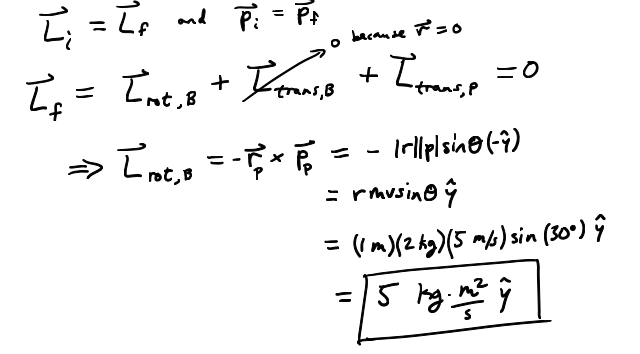 L⃗_i = L⃗_f and p⃗_i = p⃗_f
0 because r⃗ = 0
L⃗_f = L⃗_rot,B + L⃗_trans,B + L⃗_trans,P = 0
⇒ L⃗_rot,B = - r⃗_p × p⃗_p = - |r||p| sinθ (-ŷ)
= r m v sinθ ŷ
= (1 m)(2 kg)(5 m/s) sin (30°) ŷ
= 5 kg · m²/s ŷ